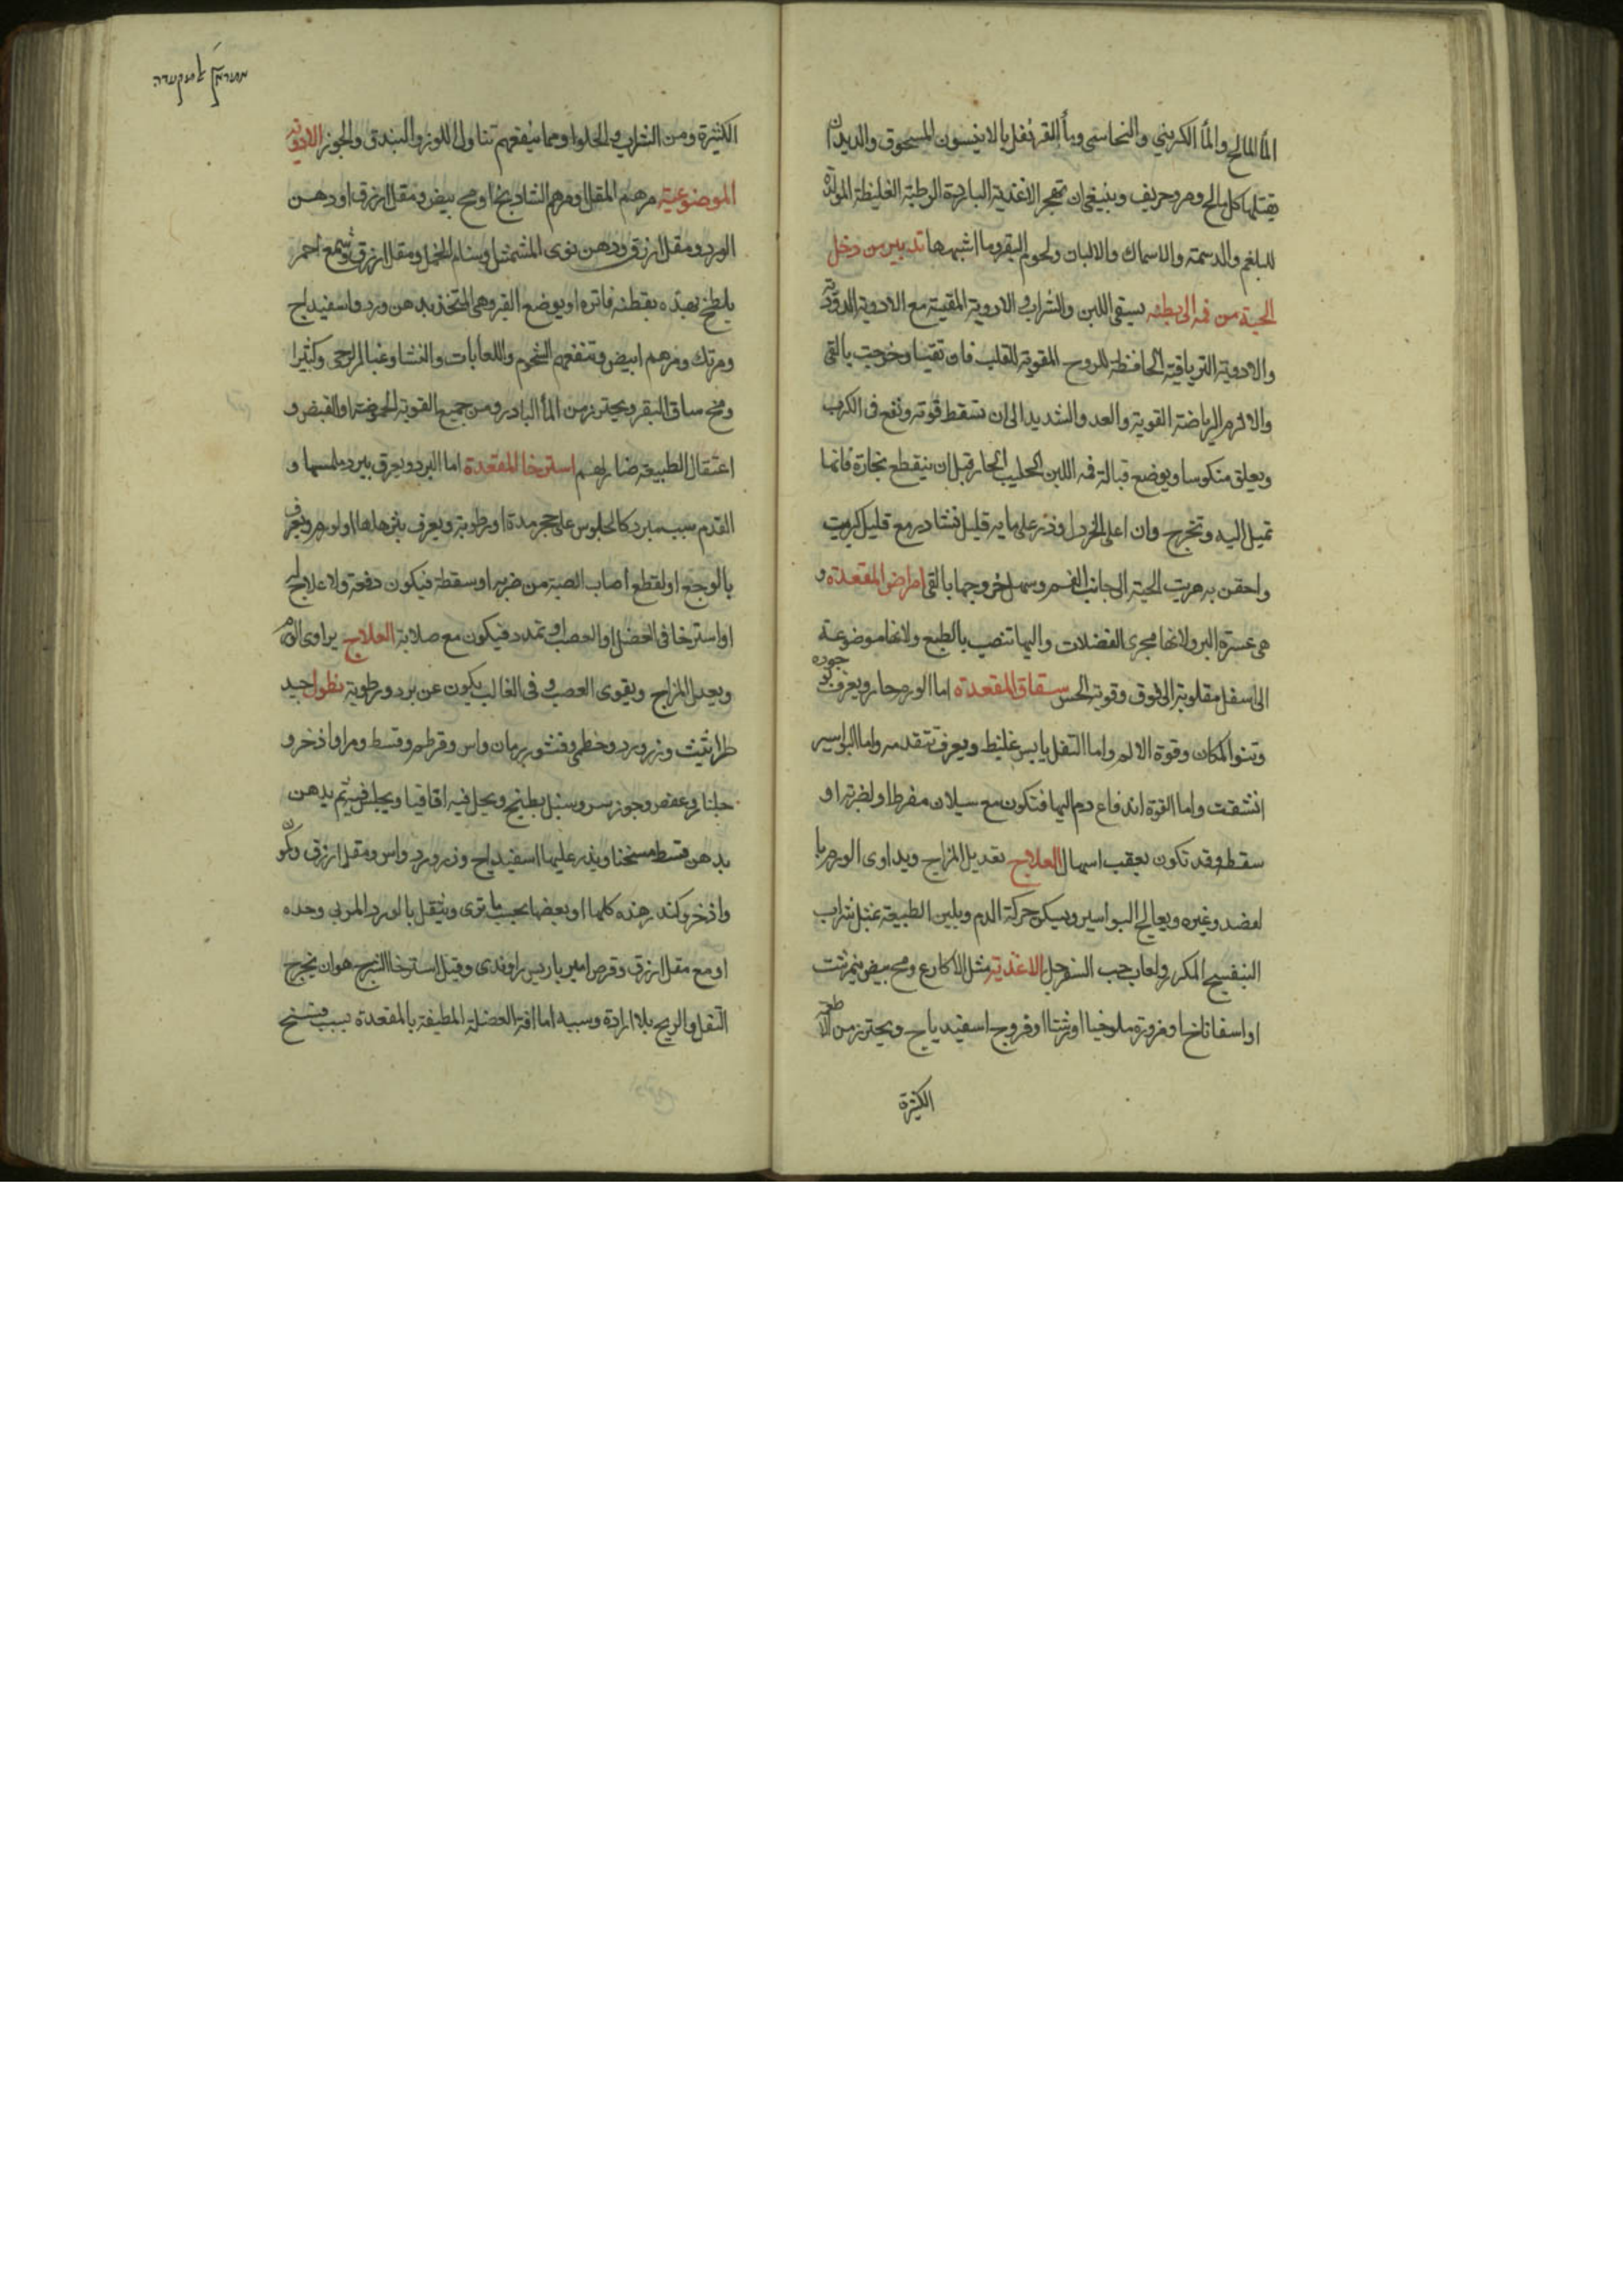 الما المالح والما الكبريتي والنحاسي وبما القرنفل بالانيسون المسحوق والديدان
يقتلها كل مالح ومر وحريف وينبغي ان تهجر الاغذية الباردة الرطبة الغليظة المولدة
للبلغم والدسمة والاسماك والالبان ولحوم البقر وما اشبهها تدبير من دخل
الحية من فمه الى بطنه يسقى اللبن والشراب والادوية المقيئة مع الادوية
والادوية الترياقية الحافظة للروح المقوية للقلب فان تقيئا وخرجت بالقي
والا لزم الرياضة القوية والعدو الشديد الى ان تسقط قوته ويقع في الكرب
ويعلق منكوسا ويوضع قبالة فمه اللبن الحليب الحار قبل ان ينقطع بخاره فانها
تميل اليه وتخرج وان اغلى الخردل وذر على مايه قليل نشادر مع قليل كبريت
واحقن به هربت الحية الى جانب الفم وسهل خروجها بالقي امراض المقعدة و
هي عسرة البرو لانها مجرى الفضلات واليها تنصب بالطبع ولانها موضوعة
الى اسفل مقلوبة الى فوق وقوية الحس شقاق المقعدة اما الورم حار ويعرف
ونتوا المكان وقوة الالم واما الثفل يابس غليظ ويعرف بتقدمه واما البواسير
انشقت واما لقوة اندفاع دم اليها فتكون مع سيلان مفرط او لضربة او
سقطة وقد تكون بعقب اسهال العلاج تعديل المزاج ويداوى الورم با
لفصد وغيره ويعالج البواسير ويسكن حركة الدم ويلين الطبيعة بمثل شراب
البنفسج المكرر ولعاب حب السفرجل الاغذية مثل الاكارع ومح بيض نيمرشت
او اسفاناخ او مزورة ملوخيا او رشتا او فروج اسفيدباج ويحترز من
الكثيرة
מתרכ׳ן למקעדה
الكثيرة ومن الشراب والحلوا ومما ينفعهم تناول اللوز والبندق والجوز الادوية
الموضوعية مرهم المقل ومرهم الشاذبخ او مح بيض ومقل ازرق او دهن
الورد ومقل ازرق ودهن نوى المشمش او سنام الجمل ومقل ازرق وشمع احمر
يلطخ بهذه بقطنة فاترة او يوضع القيروطي المتخذ بدهن ورد واسفيداج
ومرتك ومرهم ابيض وتنفعهم الشحوم واللعابات والنشا وغبار الرحى وكثيرا
ومخ ساق البقر ويحترز من الما البارد ومن جميع القوية الحموضة او القبض و
اعتقال الطبيعة ضار لهم استرخا المقعدة اما البرد ويعرف ببرد ملمسها و
القدم سبب مبرد كالجلوس على حجر مدة او رطوبة ويعرف بترهلها او لورم ويعرف
بالوجع او لقطع اصاب العصبة من ضربة او سقطة فيكون دفعة ولا علاج له
او استرخا في العضل او العصب او تمدد فيكون مع صلابة العلاج يداوى الورم
ويعدل المزاج ويقوى العصب وفي الغالب يكون عن برد ورطوبة نطول جيد
طراثيث وزر ورد وخطمي وقشور رمان واس وقرطم وقسط ومر واذخر و
جلنار وعفص وجوز سرو وسنبل يطبخ ويحل فيه اقاقيا ويجلس فيه ثم يدهن
بدهن قسط مسخنا ويذر عليها اسفيداج وزر ورد واس ومقل ازرق
واذخر وكندر هذه كلها او بعضها بحسب ما ترى ويتنقل بالورد المربى وحده
او مع مقل ازرق وقرص امبرباريس راوندي وقيل استرخا الشرج هو ان يخرج
الثفل والريح بلا ارادة وسببه اما افة العضلة المطيفة بالمقعدة بسبب